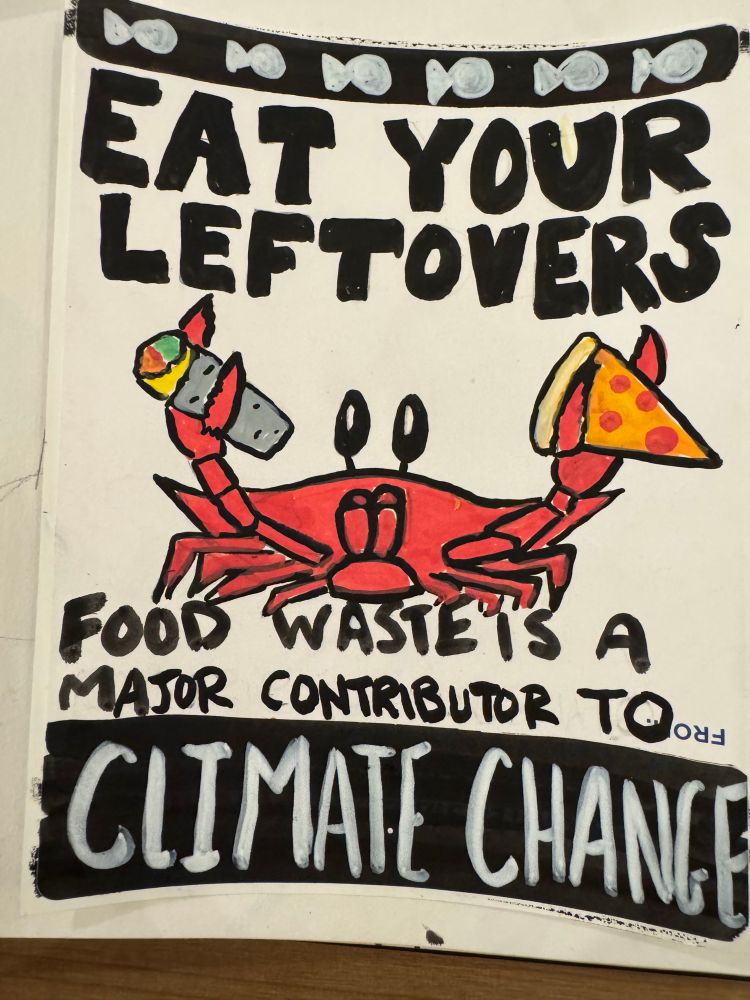 EAT YOUR
LEFTOVERS
FOOD WASTE IS A
MAJOR CONTRIBUTOR TO
FRO
CLIMATE CHANGE